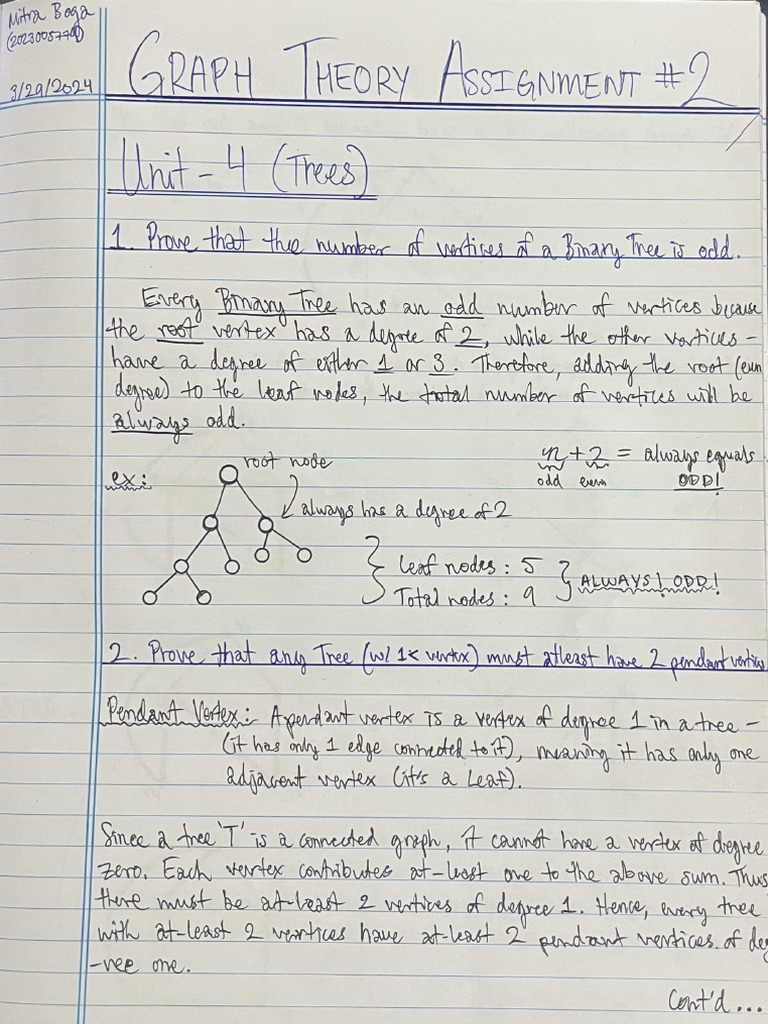 Mitra Boga
3/29/2024
GRAPH THEORY ASSIGNMENT #2
Unit - 4 (Trees)
1. Prove that the number of vertices of a Binary Tree is odd.
Every Binary Tree has an odd number of vertices because
the root vertex has a degree of 2, while the other vertices -
have a degree of either 1 or 3. Therefore, adding the root (even
degree) to the leaf nodes, the total number of vertices will be
always odd.
n + 2 = always equals
odd even ODD!
ex:
root node
always has a degree of 2
Leaf nodes : 5
Total nodes : 9
ALWAYS! ODD!
2. Prove that any Tree (w/ 1< vertex) must atleast have 2 pendant vertices
Pendant Vertex: A pendant vertex is a vertex of degree 1 in a tree -
(it has only 1 edge connected to it), meaning it has only one
adjacent vertex (it's a Leaf).
Since a tree 'T' is a connected graph, it cannot have a vertex of degree
zero. Each vertex contributes at-least one to the above sum. Thus
there must be at-least 2 vertices of degree 1. Hence, every tree
with at-least 2 vertices have at-least 2 pendant vertices of deg
-ree one.
Cont'd ...